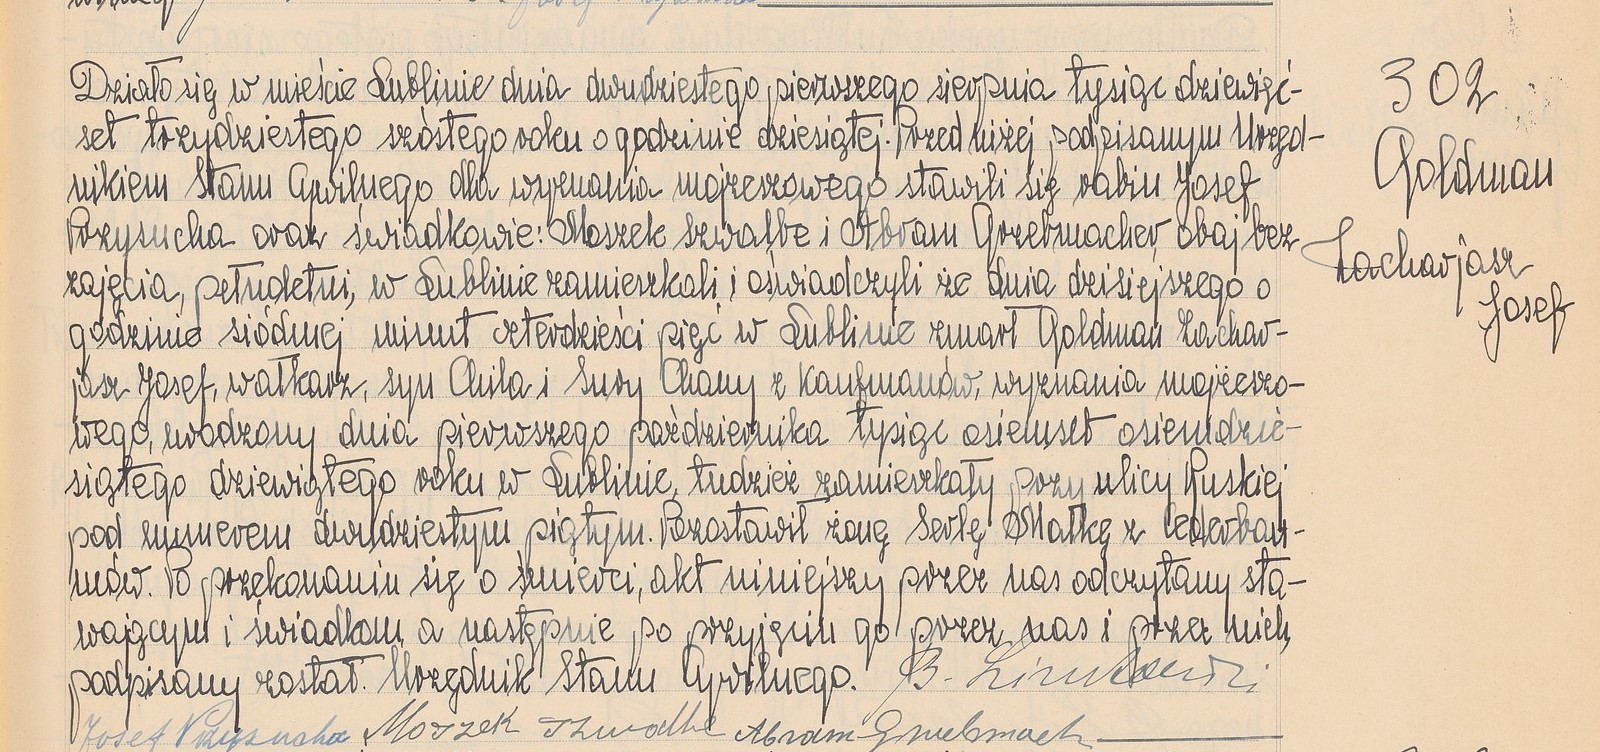 Działo się w mieście Lublinie dnia dwudziestego pierwszego sierpnia tysiąc dziewięć-
set trzydziestego szóstego roku o godzinie dziesiątej. Przed niżej podpisanym Urzęd-
nikiem Stanu Cywilnego dla wyznania mojżeszowego stawili się rabin Josef
Przysucha oraz świadkowie: Moszek Szwalbe i Abram Grzebmacher obaj bez
zajęcia, pełnoletni, w Lublinie zamieszkali i oświadczyli że dnia dzisiejszego o
godzinie siódmej minut czterdzieści pięć w Lublinie zmarł Goldman Zachar-
jasz Josef, watkarz, syn Chila i Sury Chany z Kaufmanów, wyznania mojżeszo-
wego, urodzony dnia pierwszego października tysiąc osiemset osiemdzie-
siątego dziewiątego roku w Lublinie, tudzież zamieszkały przy ulicy Ruskiej
pod numerem dwudziestym piątym. Pozostawił żonę Serlę Małkę z Cederbau-
mów. Po przekonaniu się o śmierci, akt niniejszy przez nas odczytany sta-
wającym i świadkom, a następnie po przyjęciu go przez nas i przez nich,
podpisany został. Urzędnik Stanu Cywilnego. B.
Josef Przysucha Moszek Szwalbe Abram Grzebmach
302
Goldman
Zacharjasz
Josef